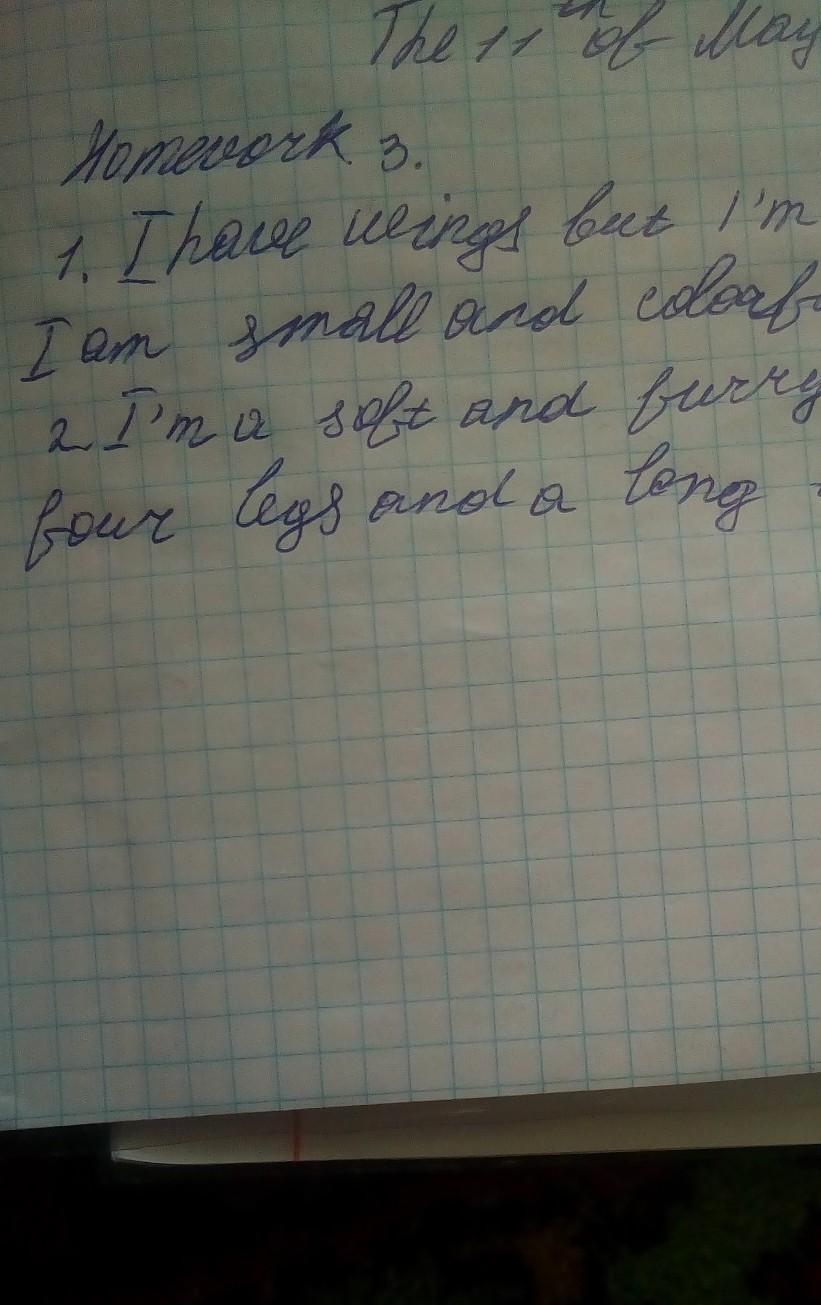 The 11th of May
Homework 3.
1. I have wings but I'm
I am small and
2 I'm a soft and furry
four legs and a long